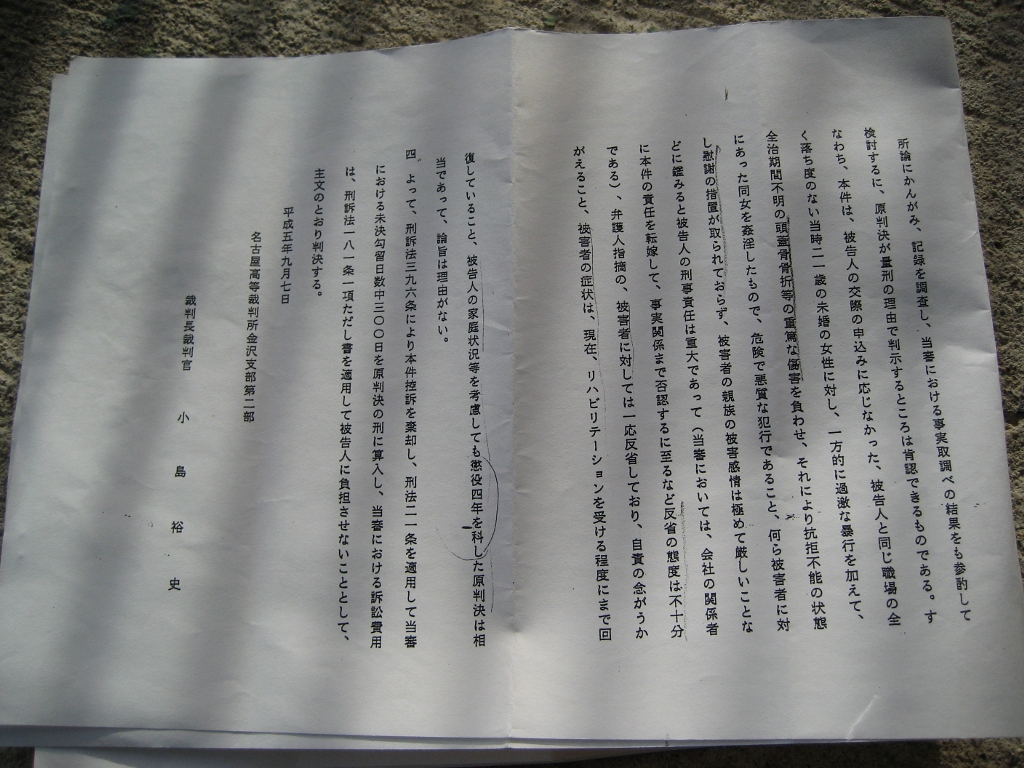 所論にかんがみ、記録を調査し、当審における事実取調べの結果をも参酌して
検討するに、原判決が量刑の理由で判示するところは肯認できるものである。す
なわち、本件は、被告人の交際の申込みに応じなかった、被告人と同じ職場の全
く落ち度のない当時二一歳の未婚の女性に対し、一方的に過激な暴行を加えて、
全治期間不明の頭蓋骨骨折等の重篤な傷害を負わせ、それにより抗拒不能の状態
にあった同女を姦淫したもので、危険で悪質な犯行であること、何ら被害者に対
し慰謝の措置が取られておらず、被害者の親族の被害感情は極めて厳しいことな
どに鑑みると被告人の刑事責任は重大であって（当審においては、会社の関係者
に本件の責任を転嫁して、事実関係まで否認するに至るなど反省の態度は不十分
である）、弁護人指摘の、被害者に対しては一応反省しており、自責の念がうか
がえること、被害者の症状は、現在、リハビリテーションを受ける程度にまで回
復していること、被告人の家庭状況等を考慮しても懲役四年を科した原判決は相
当であって、論旨は理由がない。
四　よって、刑訴法三九六条により本件控訴を棄却し、刑法二一条を適用して当審
における未決勾留日数中三〇〇日を原判決の刑に算入し、当審における訴訟費用
は、刑訴法一八一条一項ただし書を適用して被告人に負担させないこととして、
主文のとおり判決する。
平成五年九月七日
名古屋高等裁判所金沢支部第二部
裁判長裁判官　小島裕史